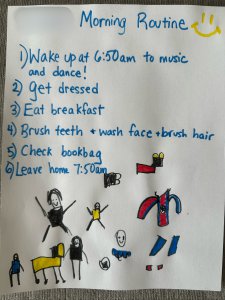 Morning Routine
1) Wake up at 6:50am to music
and dance!
2) Get dressed
3) Eat breakfast
4) Brush teeth + wash face + brush hair
5) Check bookbag
6) Leave home 7:50am